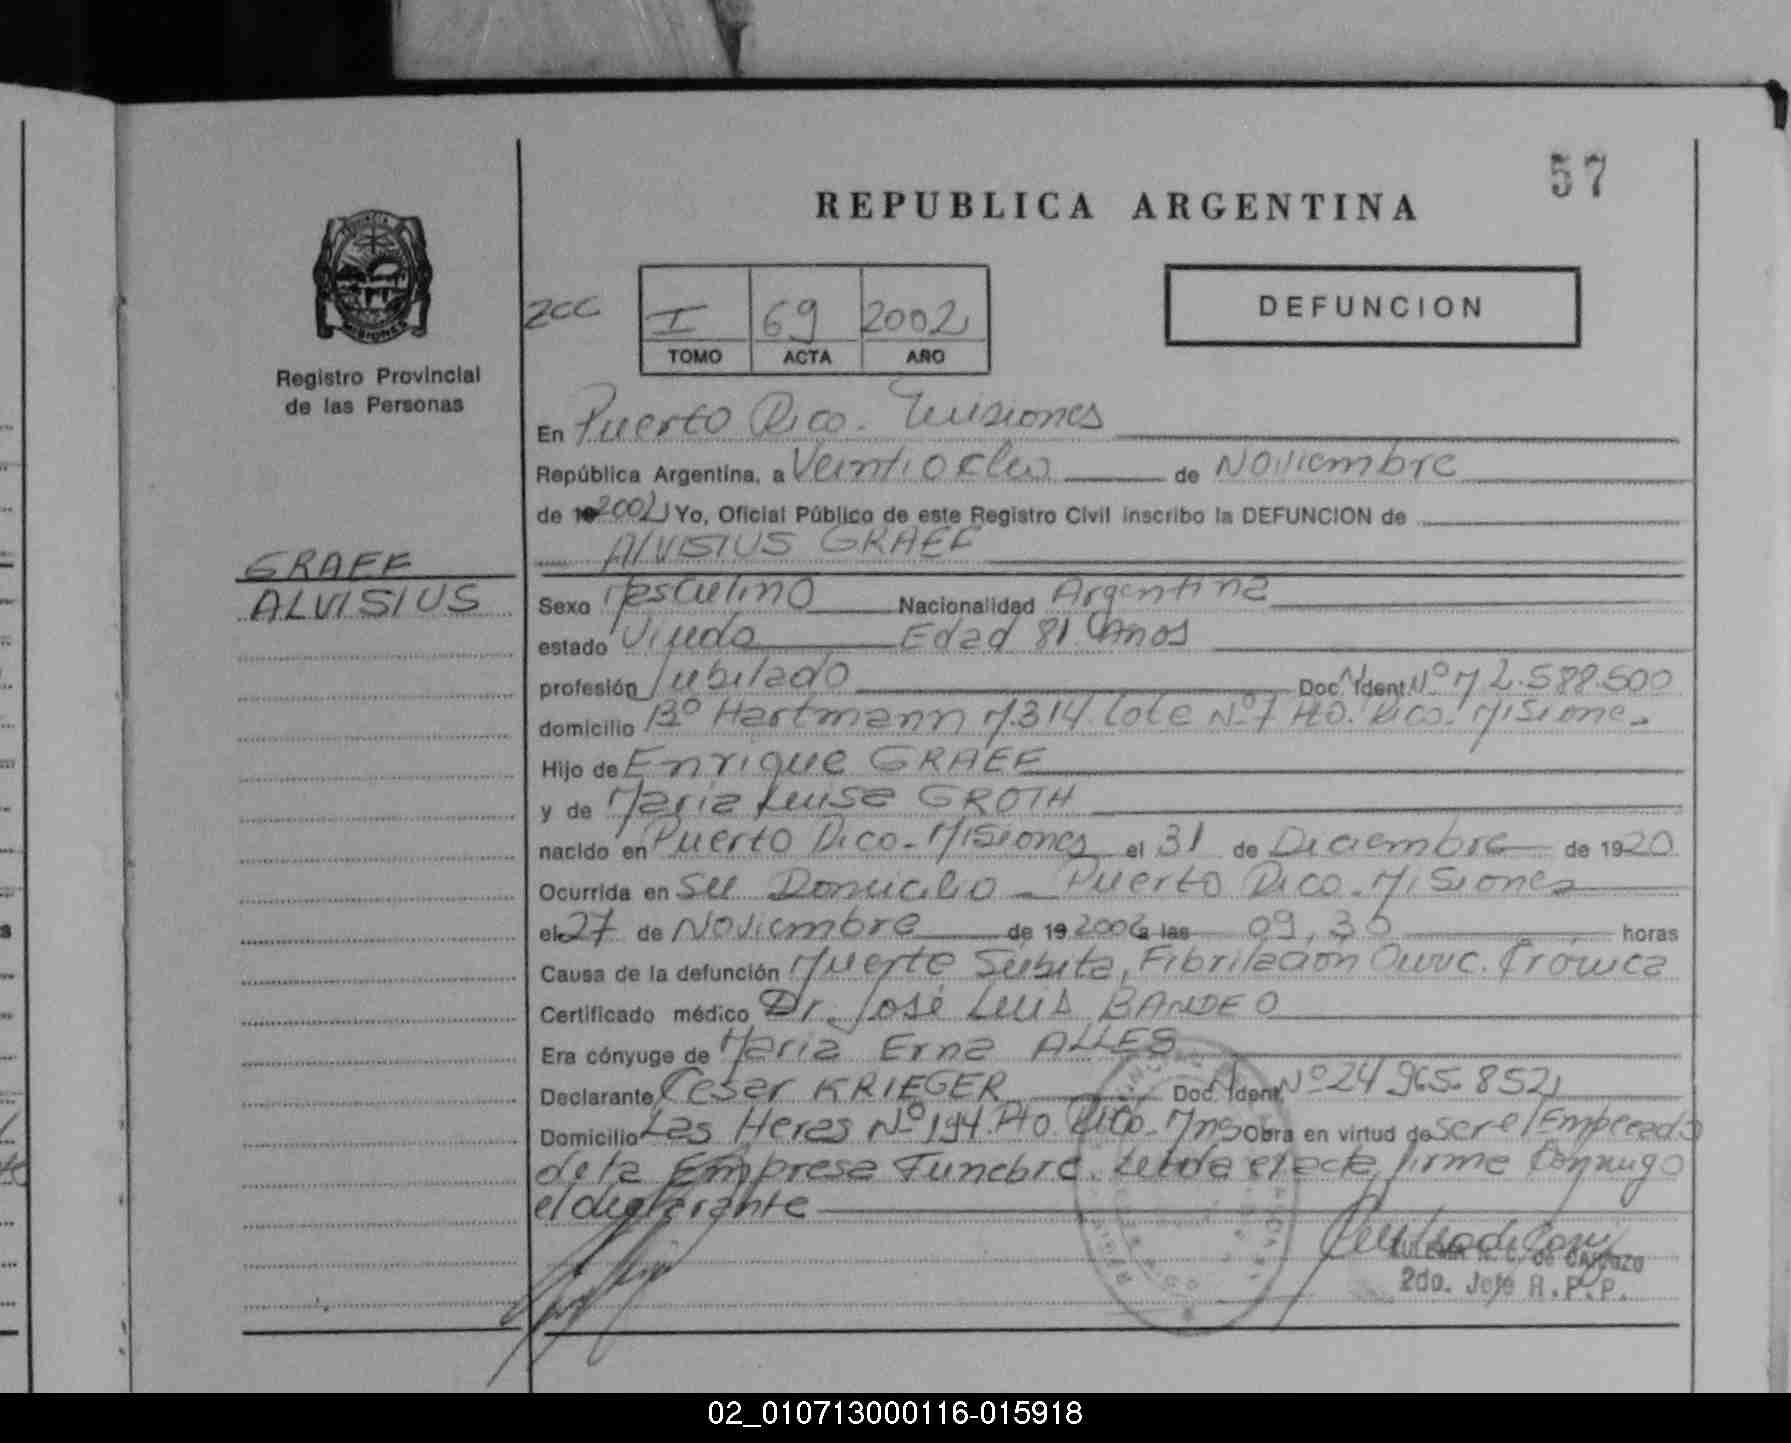 57
REPUBLICA ARGENTINA
DEFUNCION
I 69 2002
TOMO ACTA AÑO
MISIONES
Registro Provincial
de las Personas
GRAEF
ALVISIUS
En Puerto Rico. Misiones
República Argentina, a Veintiocho de Noviembre
de 19 2002 Yo, Oficial Público de este Registro Civil inscribo la DEFUNCION de
ALVISIUS GRAEF
Sexo Masculino Nacionalidad Argentina
estado Viudo Edad 81 Años
profesión Jubilado Doc. Ident. Nº M 7.588.500
domicilio Bº Hartmann M.314 Lote Nº 7 Pto. Rico. Misiones
Hijo de Enrique GRAEF
y de Maria Luisa GROTH
nacido en Puerto Rico - Misiones el 31 de Diciembre de 1920
Ocurrida en su Domicilio - Puerto Rico. Misiones
el 27 de Noviembre de 19 2002 a las 09,30 horas
Causa de la defunción Muerte Súbita, Fibrilación Auric. Crónica
Certificado médico Dr. José Luis BANDEO
Era cónyuge de Maria Erna ALLES
Declarante Cesar KRIEGER Doc. Ident. Nº 24.965.852
Domicilio Las Heras Nº 194. Pto. Rico. Mns Obra en virtud de ser el Empleado
de la Empresa Funebre. Leida el acta, firma Conmigo
el declarante
de CARDOZO
2do. Jefe R.P.P.
02_010713000116-015918